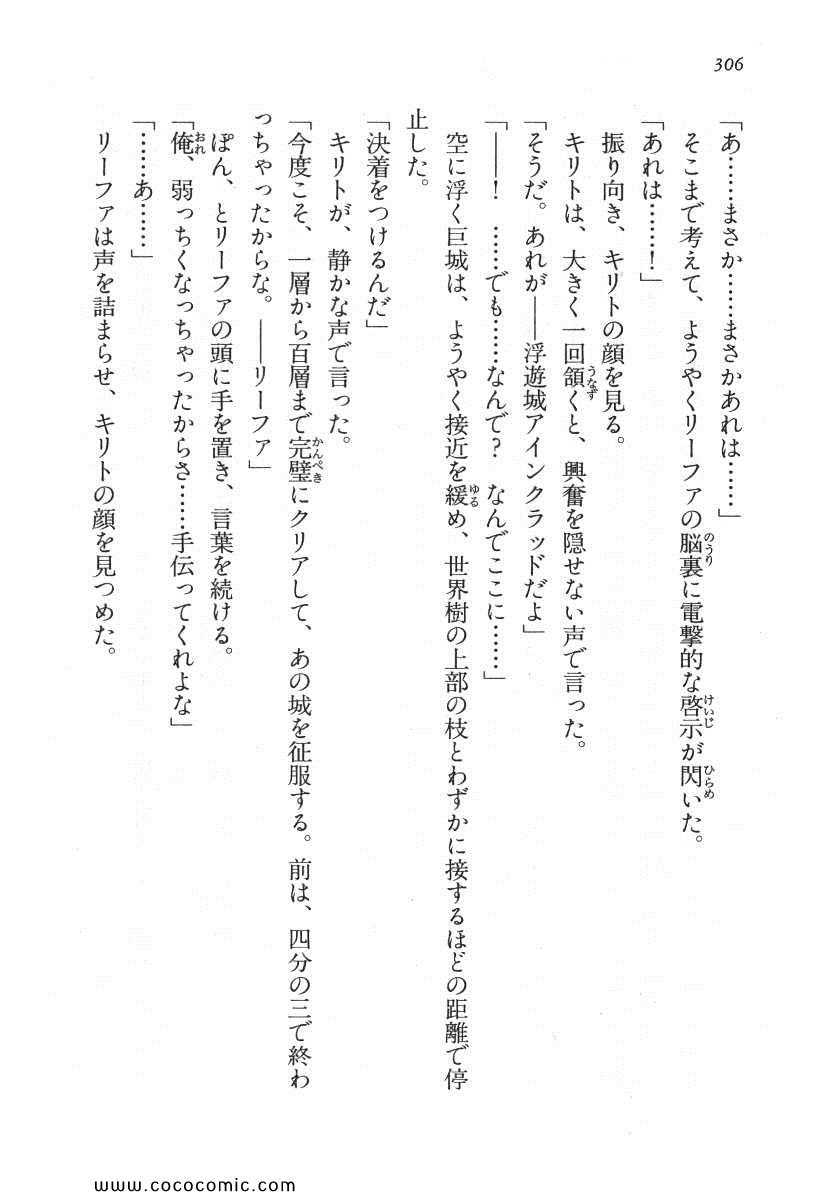 306
「あ……まさか……まさかあれは……」
そこまで考えて、ようやくリーファの脳裏に電撃的な啓示が閃いた。
「あれは……！」
振り向き、キリトの顔を見る。
キリトは、大きく一回頷くと、興奮を隠せない声で言った。
「そうだ。あれが――浮遊城アインクラッドだよ」
「――！　……でも……なんで？　なんでここに……」
空に浮く巨城は、ようやく接近を緩め、世界樹の上部の枝とわずかに接するほどの距離で停
止した。
「決着をつけるんだ」
キリトが、静かな声で言った。
「今度こそ、一層から百層まで完璧にクリアして、あの城を征服する。前は、四分の三で終わ
っちゃったからな。――リーファ」
ぽん、とリーファの頭に手を置き、言葉を続ける。
「俺、弱っちくなっちゃったからさ……手伝ってくれよな」
「……あ……」
リーファは声を詰まらせ、キリトの顔を見つめた。
www.cococomic.com